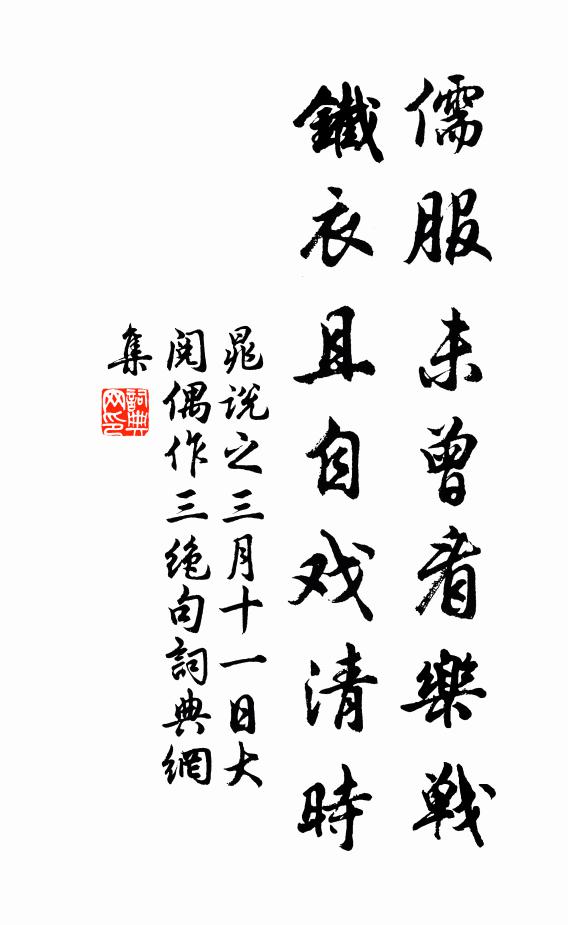 儒服未曾看樂戦
鐵衣且自戏清時
晁説之三月十一日大
閱偶作三绝句詞典網
集
詞典
网印